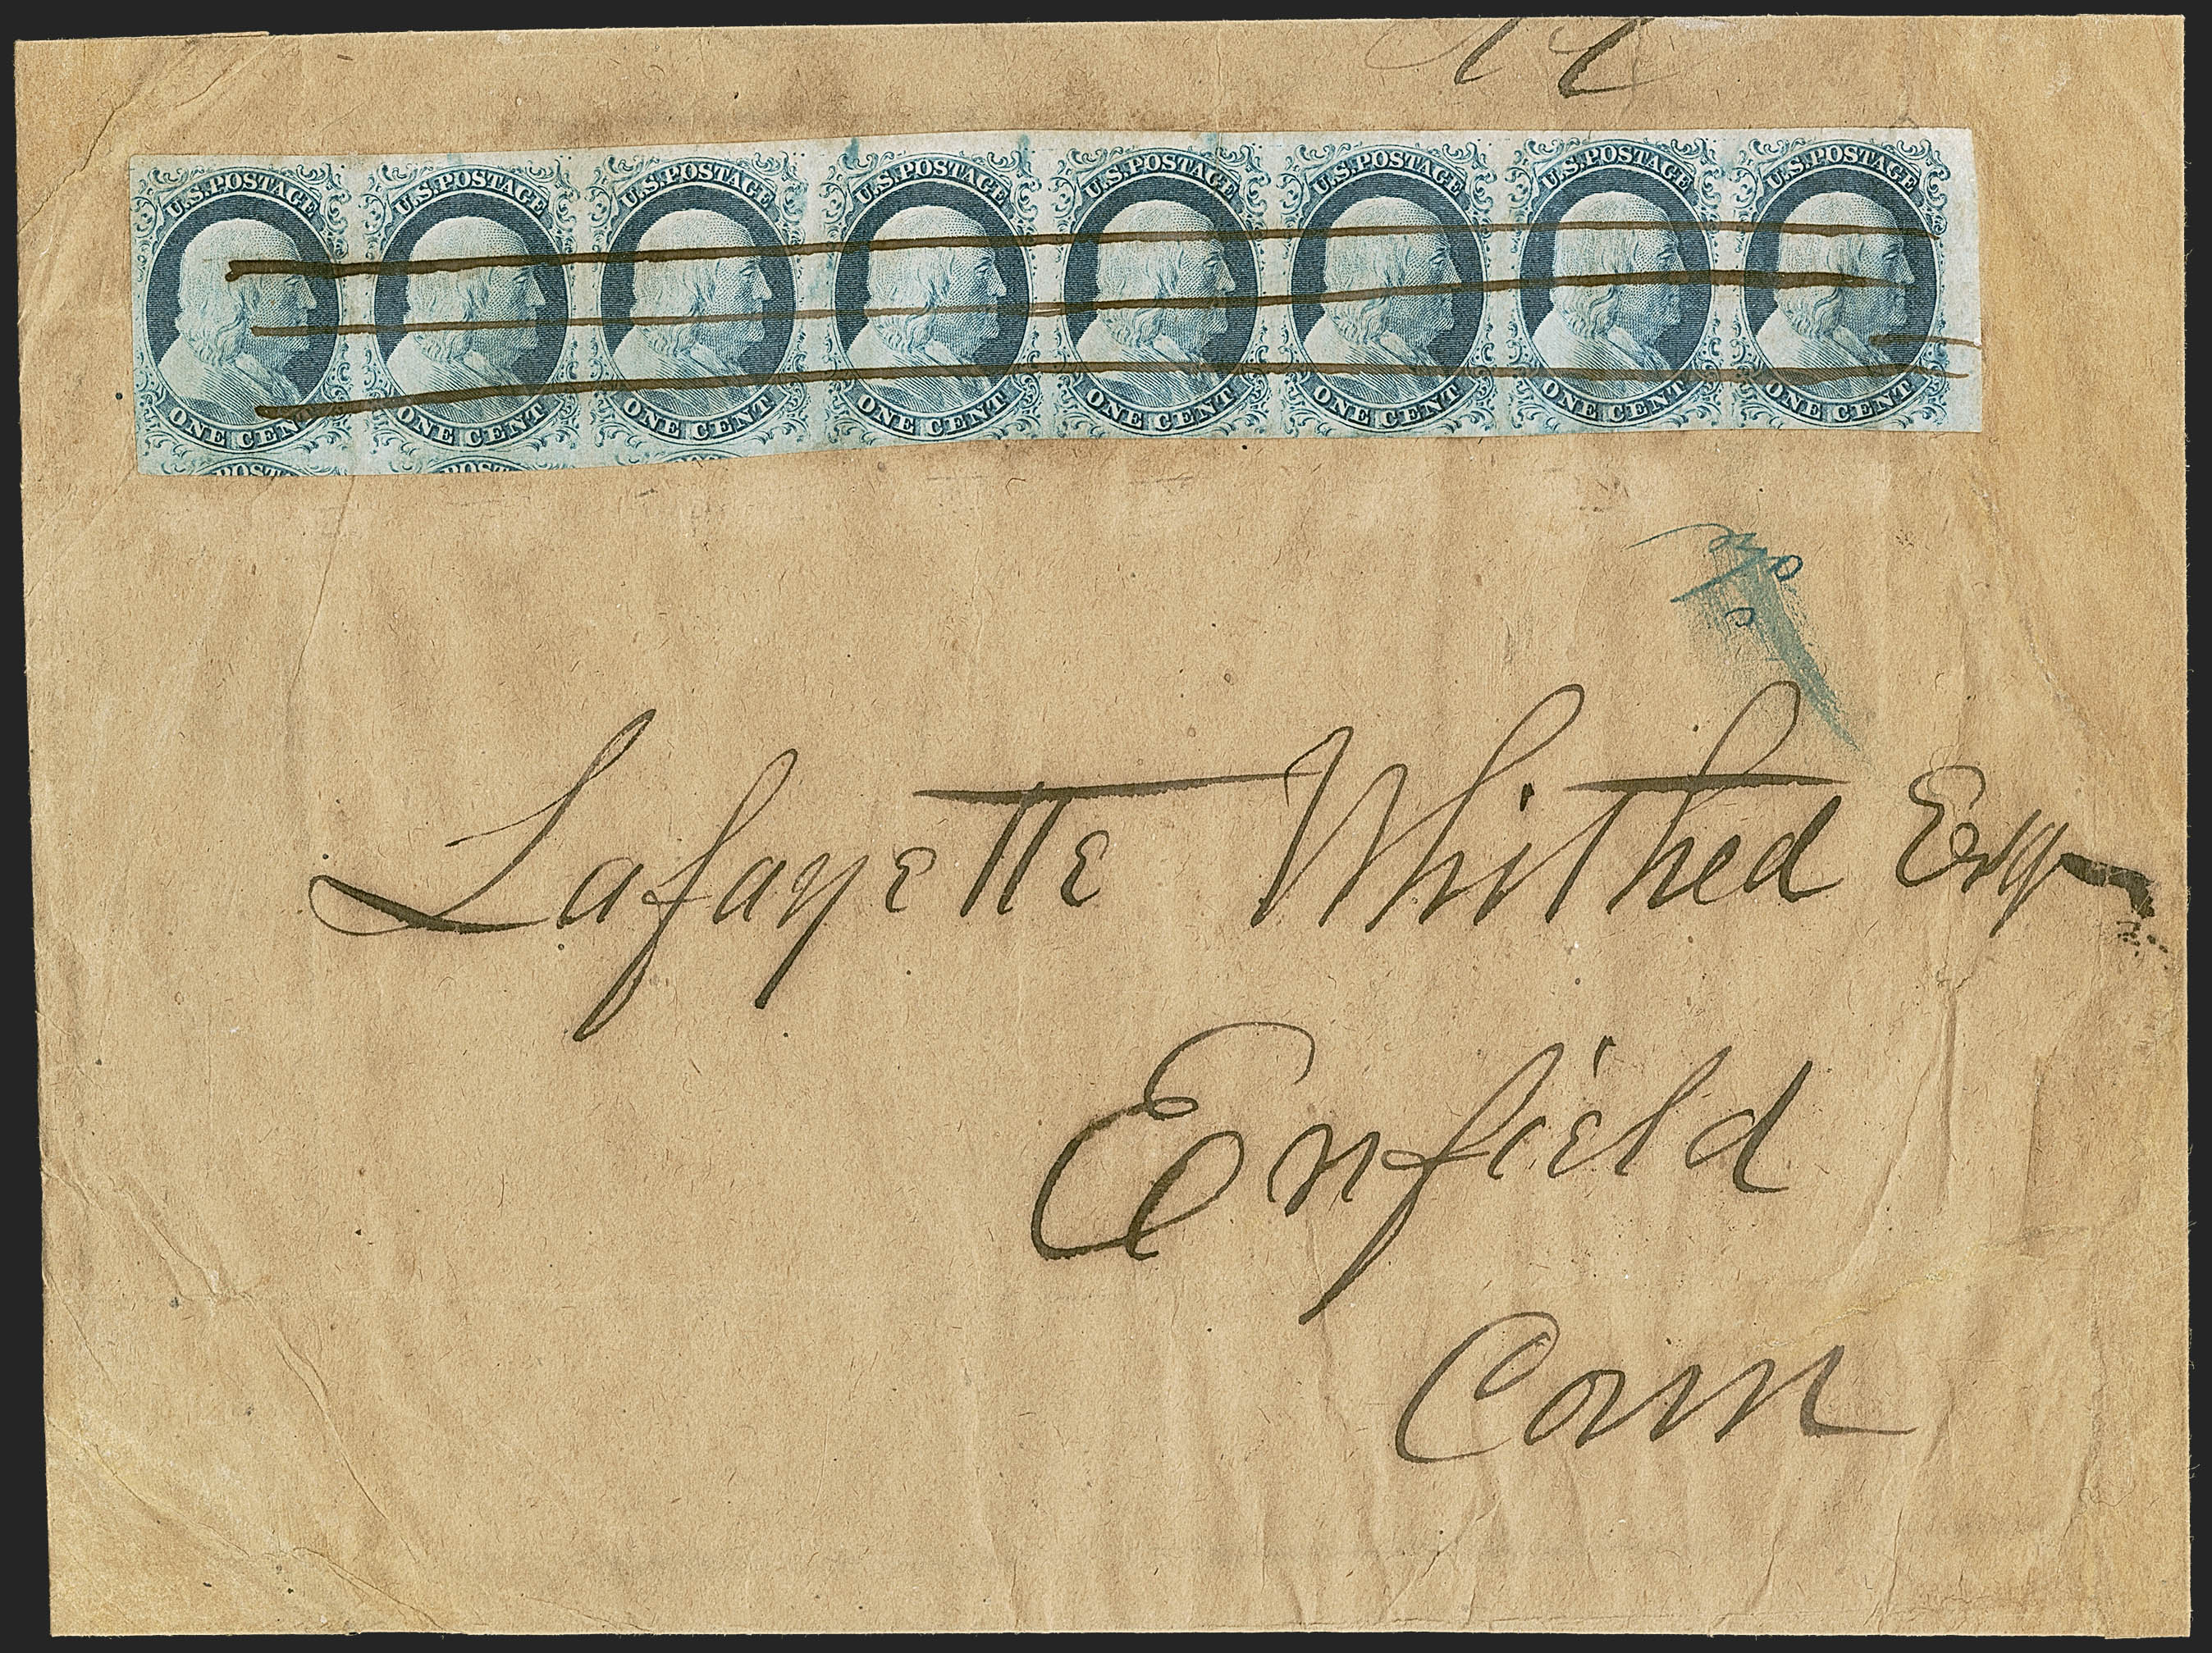 U.S. POSTAGE U.S. POSTAGE U.S. POSTAGE U.S. POSTAGE U.S. POSTAGE U.S. POSTAGE U.S. POSTAGE U.S. POSTAGE
ONE CENT ONE CENT ONE CENT ONE CENT ONE CENT ONE CENT ONE CENT ONE CENT
Lafayette Whithed Esq
Enfield
Conn